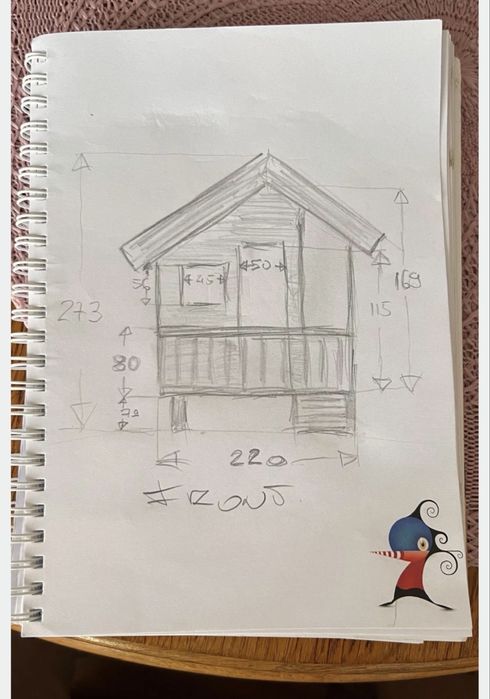 50
45
56
273
169
115
80
220
FRONT